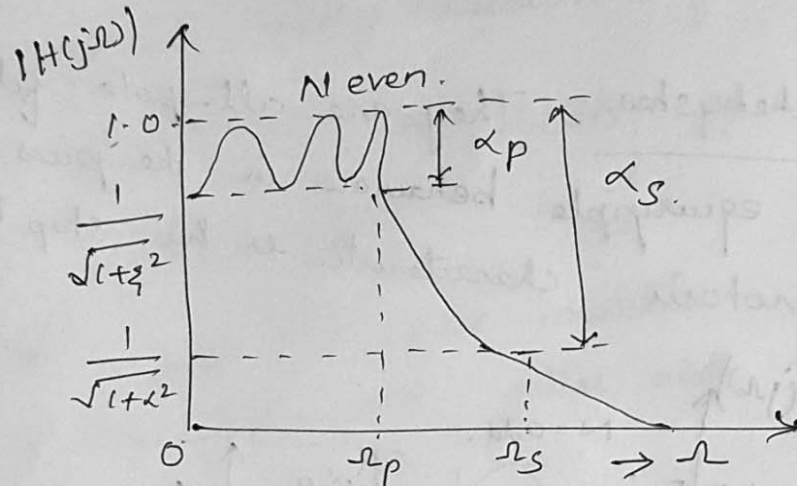 |H(jΩ)|
N even.
1.0
αp
αs.
1/√(1+ε²)
1/√(1+λ²)
0
Ωp
Ωs
→ Ω